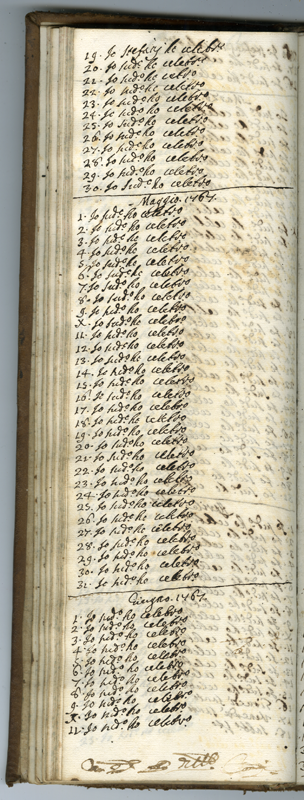 19. Io celebro
20. Io sud.o ho celebro
21. Io sud.o ho celebro
22. Io sud.o ho celebro
23. Io sud.o ho celebro
24. Io sud.o ho celebro
25. Io sud.o ho celebro
26. Io sud.o ho celebro
27. Io sud.o ho celebro
28. Io sud.o ho celebro
29. Io sud.o ho celebro
30. Io sud.o ho celebro
Maggio. 1767.
1. Io sud.o ho celebro
2. Io sud.o ho celebro
3. Io sud.o ho celebro
4. Io sud.o ho celebro
5. Io sud.o ho celebro
6. Io sud.o ho celebro
7. Io sud.o ho celebro
8. Io sud.o ho celebro
9. Io sud.o ho celebro
X. Io sud.o ho celebro
11. Io sud.o ho celebro
12. Io sud.o ho celebro
13. Io sud.o ho celebro
14. Io sud.o ho celebro
15. Io sud.o ho celebro
16. Io sud.o ho celebro
17. Io sud.o ho celebro
18. Io sud.o ho celebro
19. Io sud.o ho celebro
20. Io sud.o ho celebro
21. Io sud.o ho celebro
22. Io sud.o ho celebro
23. Io sud.o ho celebro
24. Io sud.o ho celebro
25. Io sud.o ho celebro
26. Io sud.o ho celebro
27. Io sud.o ho celebro
28. Io sud.o ho celebro
29. Io sud.o ho celebro
30. Io sud.o ho celebro
31. Io sud.o ho celebro
Giugno. 1767.
1. Io sud.o ho celebro
2. Io sud.o ho celebro
3. Io sud.o ho celebro
4. Io sud.o ho celebro
5. Io sud.o ho celebro
6. Io sud.o ho celebro
7. Io sud.o ho celebro
8. Io sud.o ho celebro
9. Io sud.o ho celebro
X. Io sud.o ho celebro
11. Io sud.o ho celebro